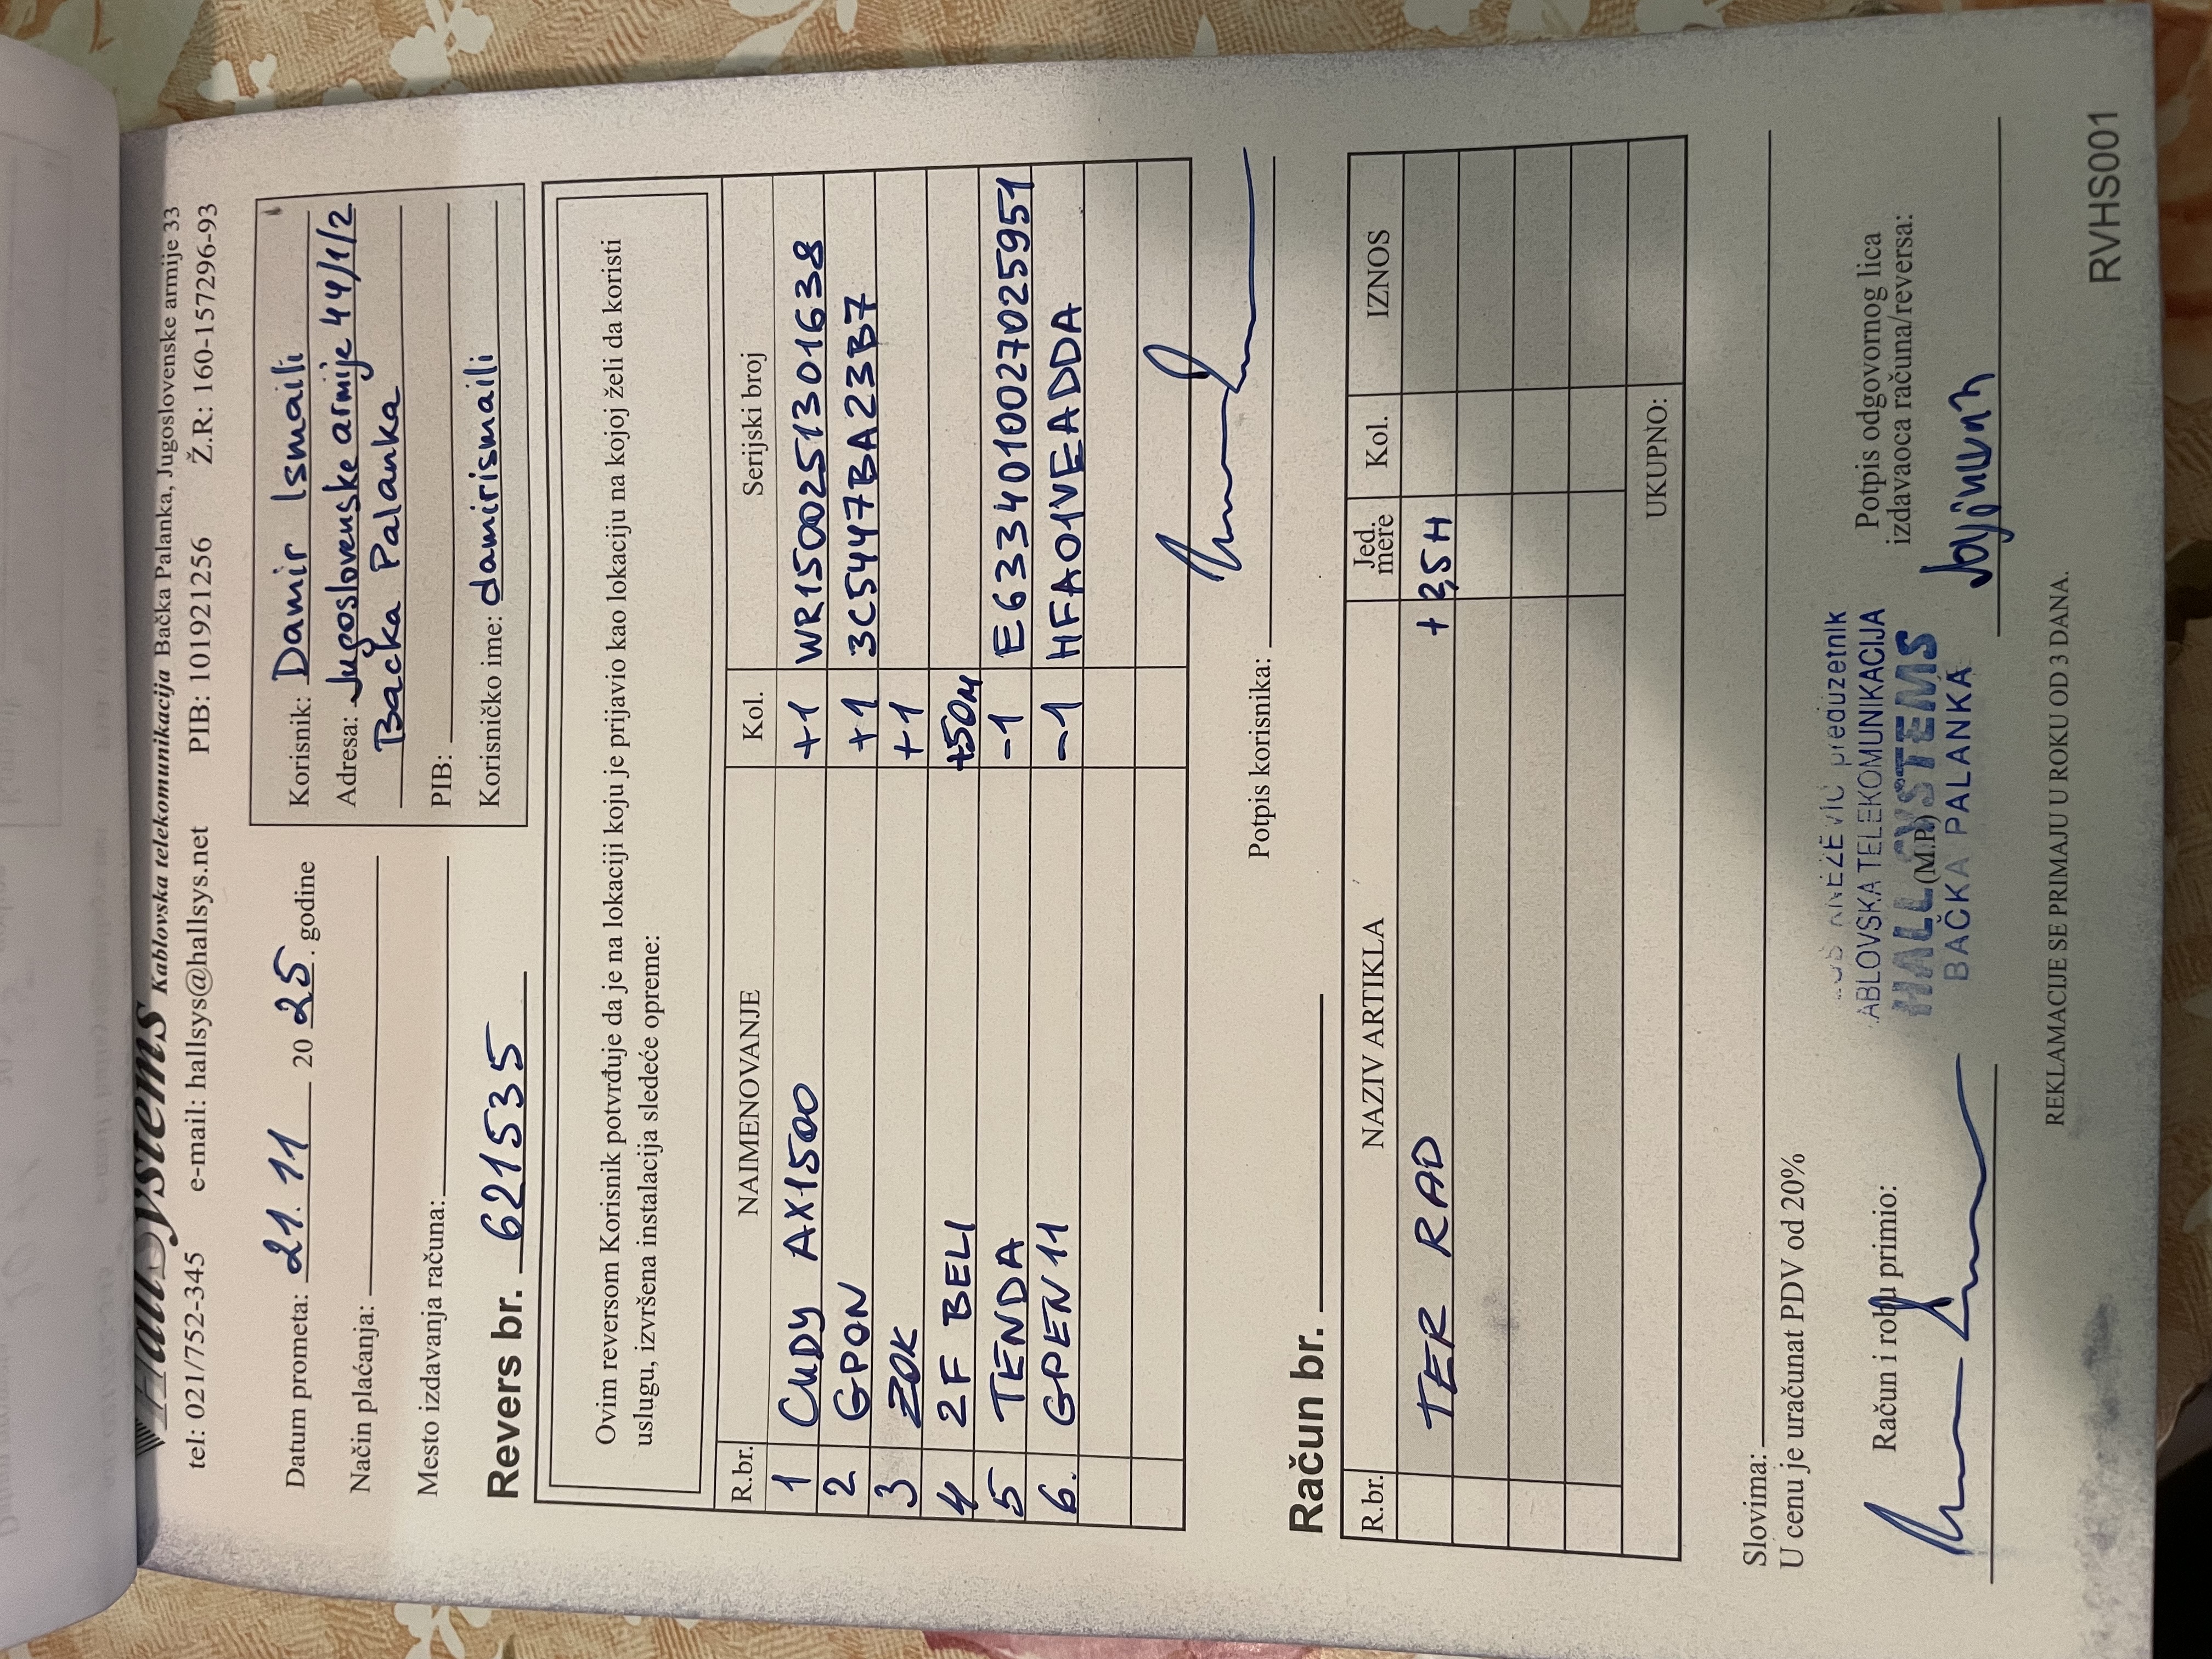 HallSystems Kablovska telekomunikacija Bačka Palanka, Jugoslovenske armije 33
tel: 021/752-345 e-mail: hallsys@hallsys.net PIB: 101921256 Ž.R: 160-157296-93
Datum prometa: 21. 11 20 25. godine
Način plaćanja:
Mesto izdavanja računa:
Revers br. 621535
Korisnik: Damir Ismaili
Adresa: Jugoslovenske armije 44/1/2
Bačka Palanka
PIB:
Korisničko ime: damirismaili
Ovim reversom Korisnik potvrđuje da je na lokaciji koju je prijavio kao lokaciju na kojoj želi da koristi
uslugu, izvršena instalacija sledeće opreme:
R.br. NAIMENOVANJE Kol. Serijski broj
1 CUDY AX1500 +1 WR1500251301638
2 GPON +1 3C5447BA23B7
3 ZOK +1
4 2F BELI +50m
5 TENDA -1 E6334010027025951
6. GPEN11 -1 HFA01VEADDA
Potpis korisnika:
Račun br.
R.br. NAZIV ARTIKLA Jed. mere Kol. IZNOS
TER RAD + 2,5H
UKUPNO:
Slovima:
U cenu je uračunat PDV od 20%
Račun i robu primio:
(M.P.)
preduzetnik
ABLOVSKA TELEKOMUNIKACIJA
HALL SYSTEMS
BAČKA PALANKA
Potpis odgovornog lica
izdavaoca računa/reversa:
REKLAMACIJE SE PRIMAJU U ROKU OD 3 DANA.
RVHS001